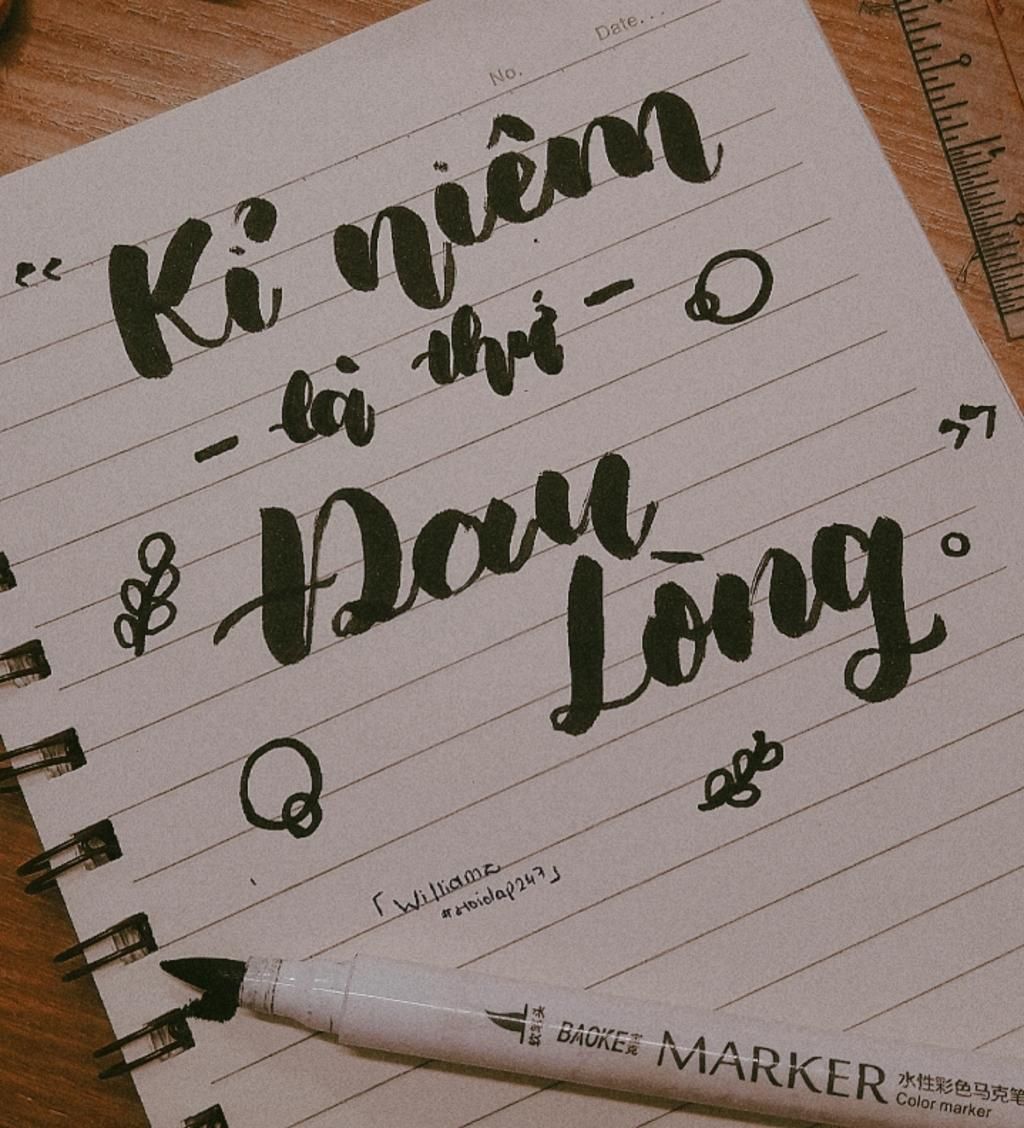 Date...
No.
“Kỉ niêm
- là thứ -
Đau
Lòng”
「Williamz
#Hoidap247」
BAOKE宝克 MARKER 水性彩色马克笔
软头
Color marker